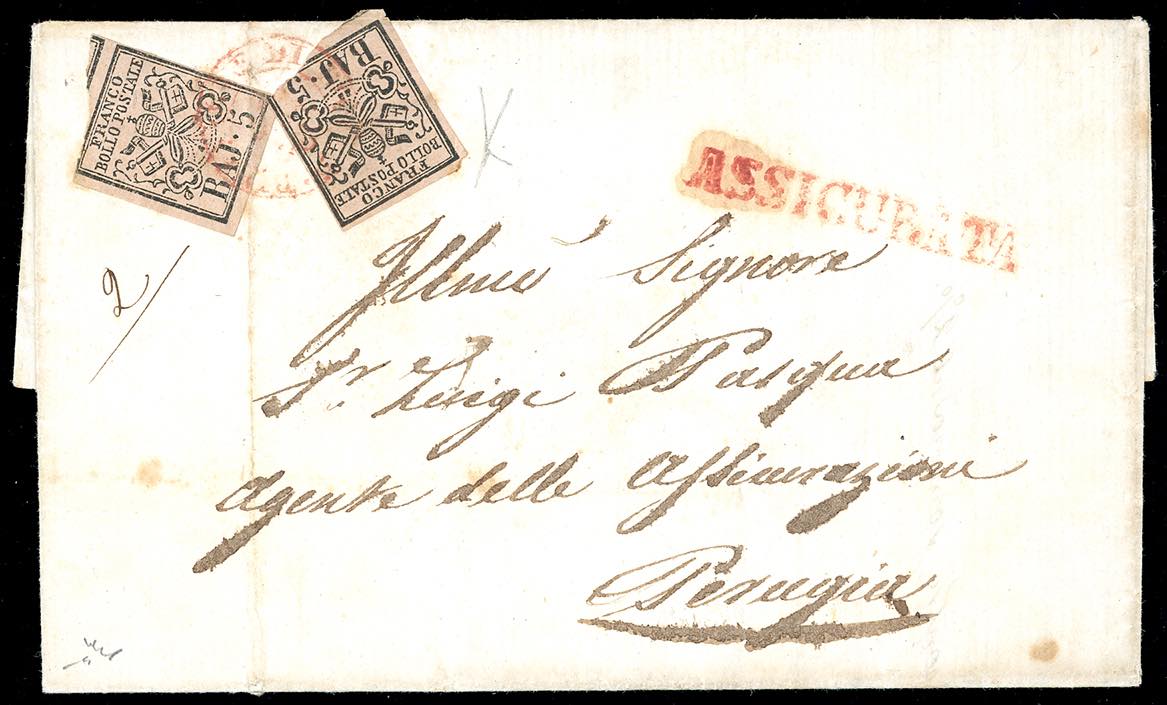 FRANCO
BOLLO POSTALE
BAJ. 5
BAJ. 5
FRANCO
BOLLO POSTALE
K
ASSICURATA
2/
Illmo Signore
Sr. Luigi Pasqua
Agente delle Assicurazioni
Perugia